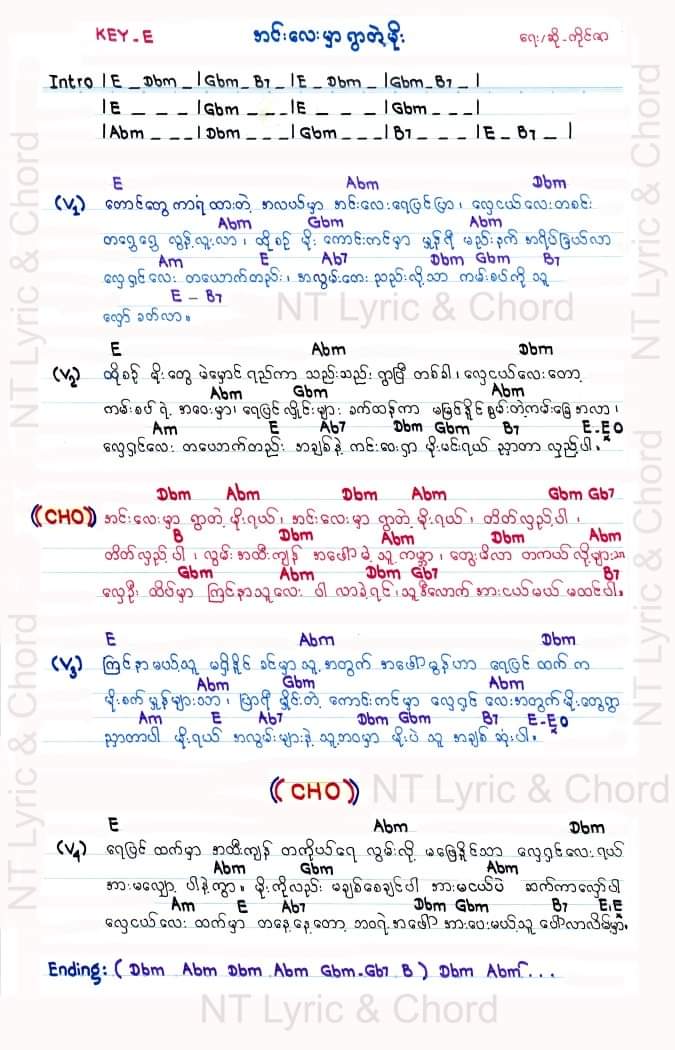 KEY-E အင်းလေးမှာ ရွာတဲ့မိုး ရေး/ဆို-ကိုင်ဇာ
Intro |E _ Dbm _ |Gbm _ B7 _ |E _ Dbm _ |Gbm _ B7 _ |
|E _ _ _ |Gbm _ _ _ |E _ _ _ |Gbm _ _ _ |
|Abm _ _ _ |Dbm _ _ _ |Gbm _ _ _ |B7 _ _ _ |E _ B7 _ |
E Abm Dbm
(V1) တောင်တွေ ကာရံ ထားတဲ့ အလယ်မှာ အင်းလေးရေပြင်ပြာ ၊ လှေငယ်လေးတစင်း
Abm Gbm Abm
တရွေ့ရွေ့ လွန့်လူးလာ ၊ ထိုစဉ် မိုး ကောင်းကင်မှာ မှုန်ရီ မည်းနက် အရိပ်ခြယ်လာ
Am E Ab7 Dbm Gbm B7
လှေရှင်လေး တယောက်တည်း ၊ အလွမ်းတေး ညည်းလို့သာ ကမ်းစပ်ကို သူ
E - B7
လှော် ခတ်လာ ။
E Abm Dbm
(V2) ထိုစဉ် မိုးတွေ မဲမှောင် ရည်ကာ သည်းသည်း ရွာပြီ တစ်ခါ ၊ လှေငယ်လေးတော့
Abm Gbm Abm
ကမ်းစပ် ရဲ့ အဝေးမှာ ၊ ရေပြင်လှိုင်းများ ခက်ထန်ကာ မမြင်နိုင်စွမ်းတဲ့ကမ်းခြေ အလာ ၊
Am E Ab7 Dbm Gbm B7 E-E 0
လှေရှင်လေး တယောက်တည်း အချစ်နဲ့ ကင်းဝေးရှာ မိုးမင်းရယ် ညှာတာ လှည့်ပါ ။
Dbm Abm Dbm Abm Gbm Gb7
((CHO)) အင်းလေးမှာ ရွာတဲ့ မိုးရယ် ၊ အင်းလေးမှာ ရွာတဲ့ မိုးရယ် ၊ တိတ်လှည့်ပါ ၊
B Dbm Abm Dbm Abm
တိတ်လှည့် ပါ ၊ လွမ်းအထီးကျန် အဖော်မဲ့ သူ့ကမ္ဘာ ၊ တွေးမိလာ တကယ်လို့များသာ
Gbm Abm Dbm Gb7 B7
လှေဦး ထိပ်မှာ ကြင်နာသူလေး ပါ လာခဲ့ရင် ၊ သူဒီလောက် အားငယ်မယ် မထင်ပါ ။
E Abm Dbm
(V3) ကြင်နာမယ့်သူ မရှိနိုင် ခင်မှာ သူ့အတွက် အဖော်မွန်ဟာ ရေပြင် ထက် က
Abm Gbm Abm
မိုးစက်မှုန်များသာ ၊ ပြာရီ မှိုင်းတဲ့ ကောင်းကင်မှာ လှေရှင် လေးအတွက်မိုးတွေရွာ
Am E Ab7 Dbm Gbm B7 E-E 0
ညှာတာပါ မိုးရယ် အလွမ်းများနဲ့ သူ့ဘဝမှာ မိုးပဲ သူ အချစ် ဆုံးပါ ။
((CHO))
E Abm Dbm
(V4) ရေပြင် ထက်မှာ အထီးကျန် တကိုယ်ရေ လွမ်းလို့ မဖြေနိုင်သော လှေရှင်လေးရယ်
Abm Gbm Abm
အားမလျှော့ ပါနဲ့ကွာ ။ မိုးကိုလည်း မချစ်စေချင်ပါ အားမငယ်ပဲ ဆက်ကာလှော်ပါ
Am E Ab7 Dbm Gbm B7 E,E
လှေငယ်လေး ထက်မှာ တနေ့နေ့တော့ ဘဝရဲ့အဖော် အားပေးမယ့်သူ ပေါ်လာလိမ့်မှာ့ ။
Ending: ( Dbm Abm Dbm Abm Gbm-Gb7 B ) Dbm Abm ...
NT Lyric & Chord
NT Lyric & Chord
NT Lyric & Chord
NT Lyric & Chord
NT Lyric & Chord
NT Lyric & Chord
NT Lyric & Chord